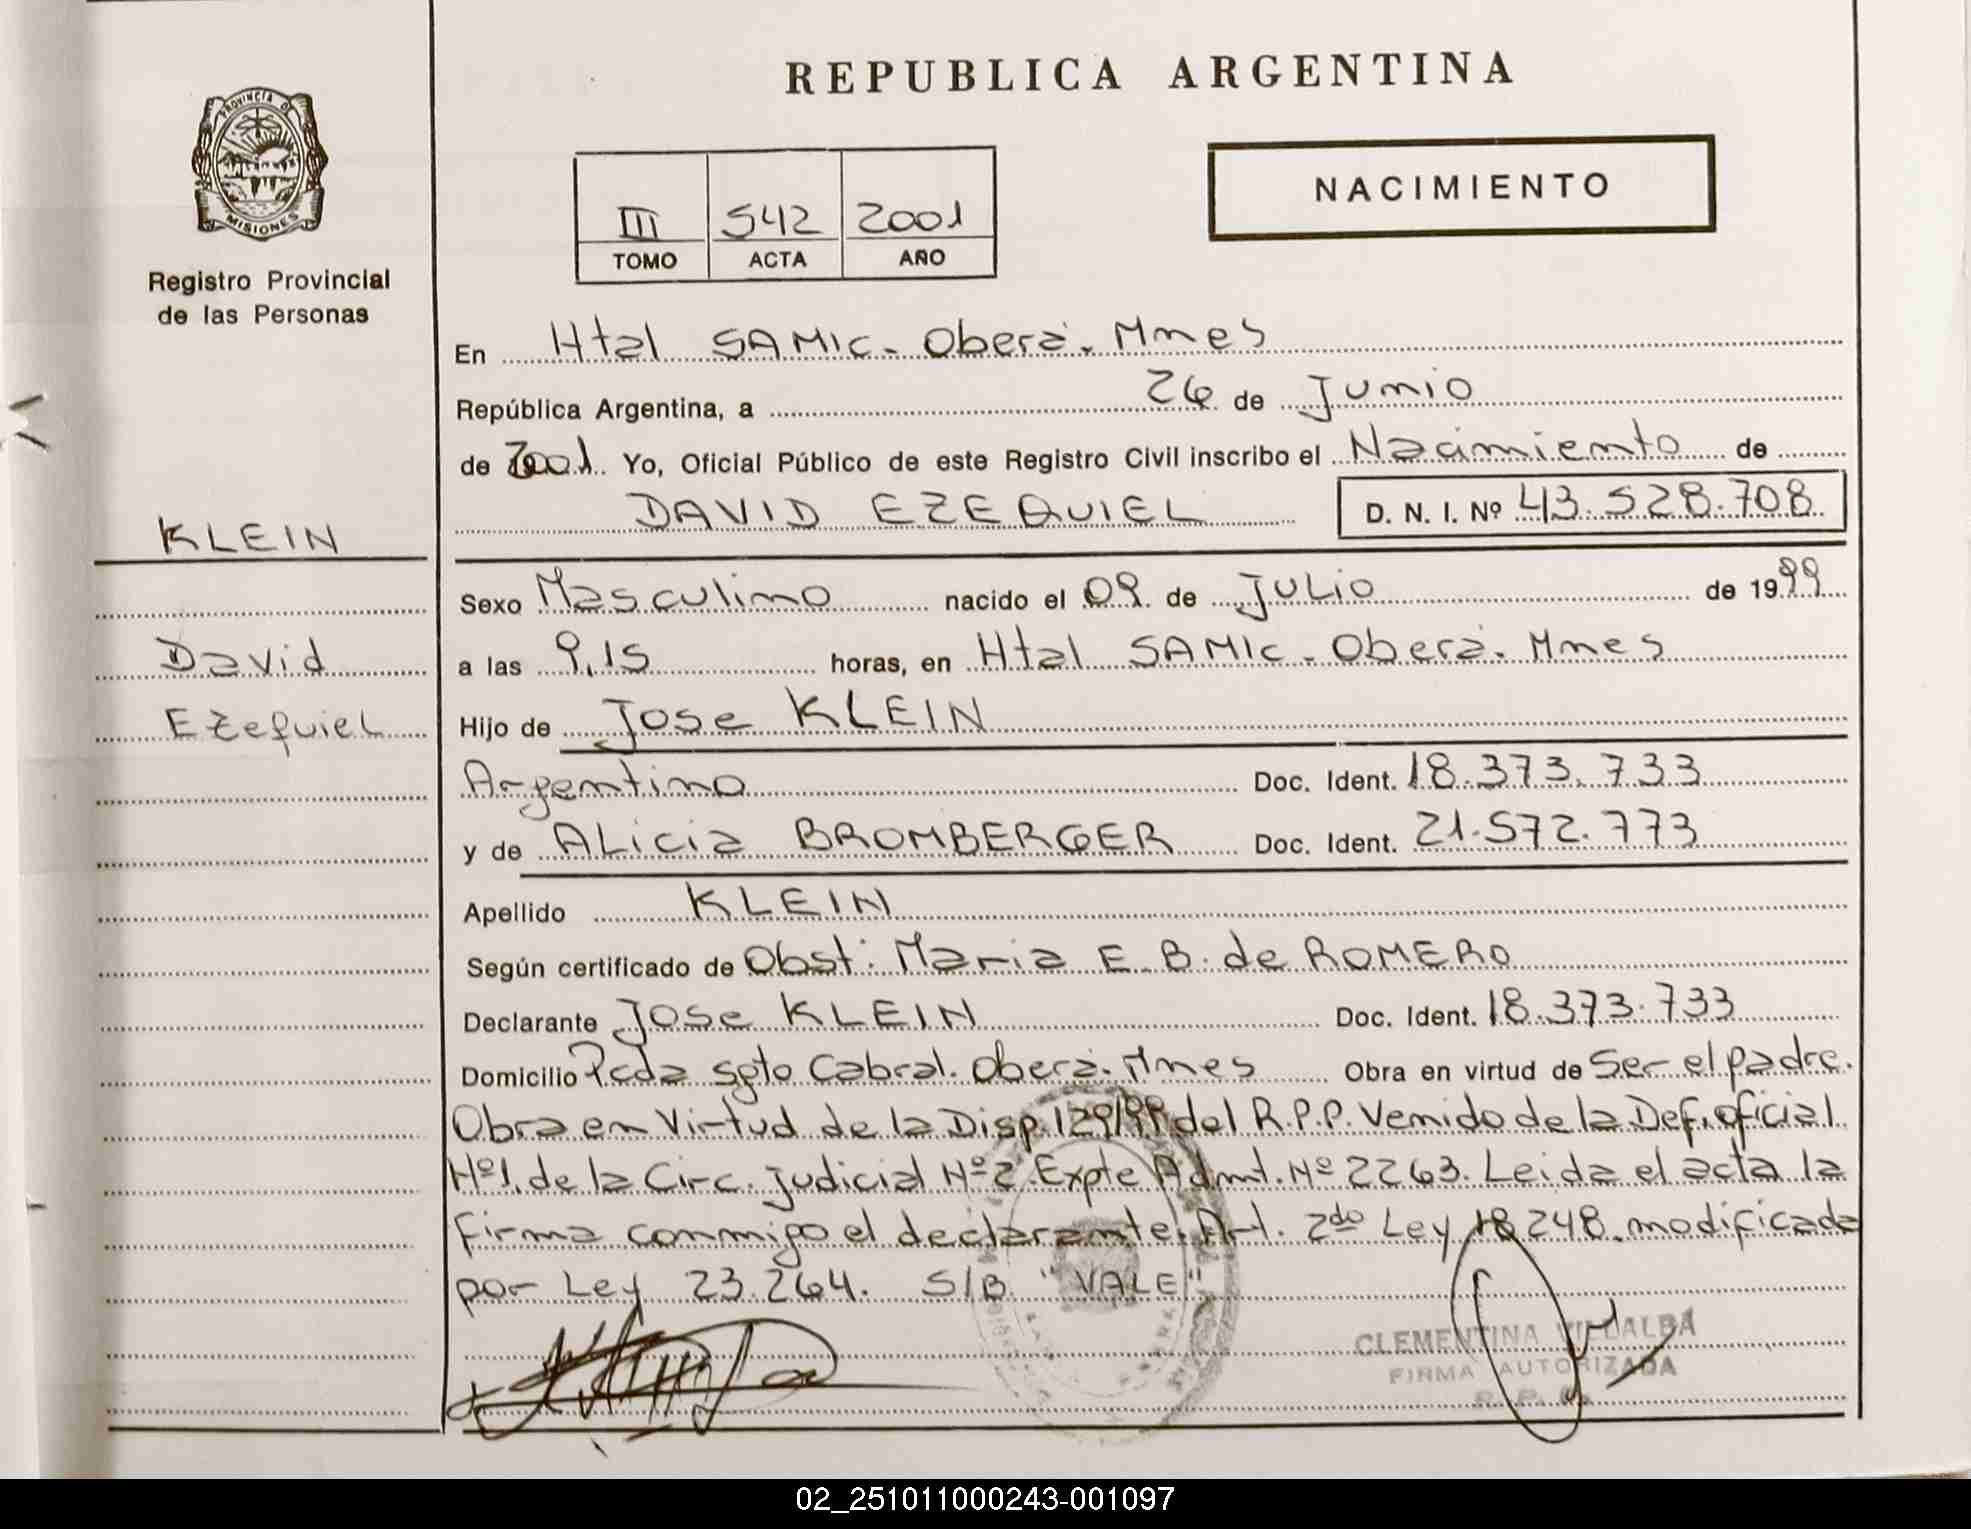 REPUBLICA ARGENTINA
PROVINCIA DE
MISIONES
Registro Provincial
de las Personas
NACIMIENTO
III 542 2001
TOMO ACTA AÑO
En Htal SAMIC. Oberá. Mnes
República Argentina, a 26 de Junio
de 2001. Yo, Oficial Público de este Registro Civil inscribo el Nacimiento de
DAVID EZEQUIEL D. N. I. Nº 43.528.708
KLEIN
David
Ezequiel
Sexo Masculino nacido el 09 de Julio de 1999
a las 9,15 horas, en Htal SAMIC. Oberá. Mnes
Hijo de Jose KLEIN
Argentino Doc. Ident. 18.373.733
y de ALicia BROMBERGER Doc. Ident. 21.572.773
Apellido KLEIN
Según certificado de Obst: Maria E. B. de ROMERO
Declarante Jose KLEIN Doc. Ident. 18.373.733
Domicilio Pcda Sgto Cabral. Oberá. Mnes Obra en virtud de Ser el padre.
Obra en Virtud de la Disp. 129/99 del R.P.P. Venido de la Def. oficial
Nº1. de la Circ. Judicial Nº2. Expte Admt. Nº 2263. Leida el acta la
firma conmigo el declarante. Art. 2do Ley 18248. modificada
por Ley 23.264. S/B "VALE"
CLEMENTINA VILLALBA
FIRMA AUTORIZADA
R. P. P.
02_251011000243-001097